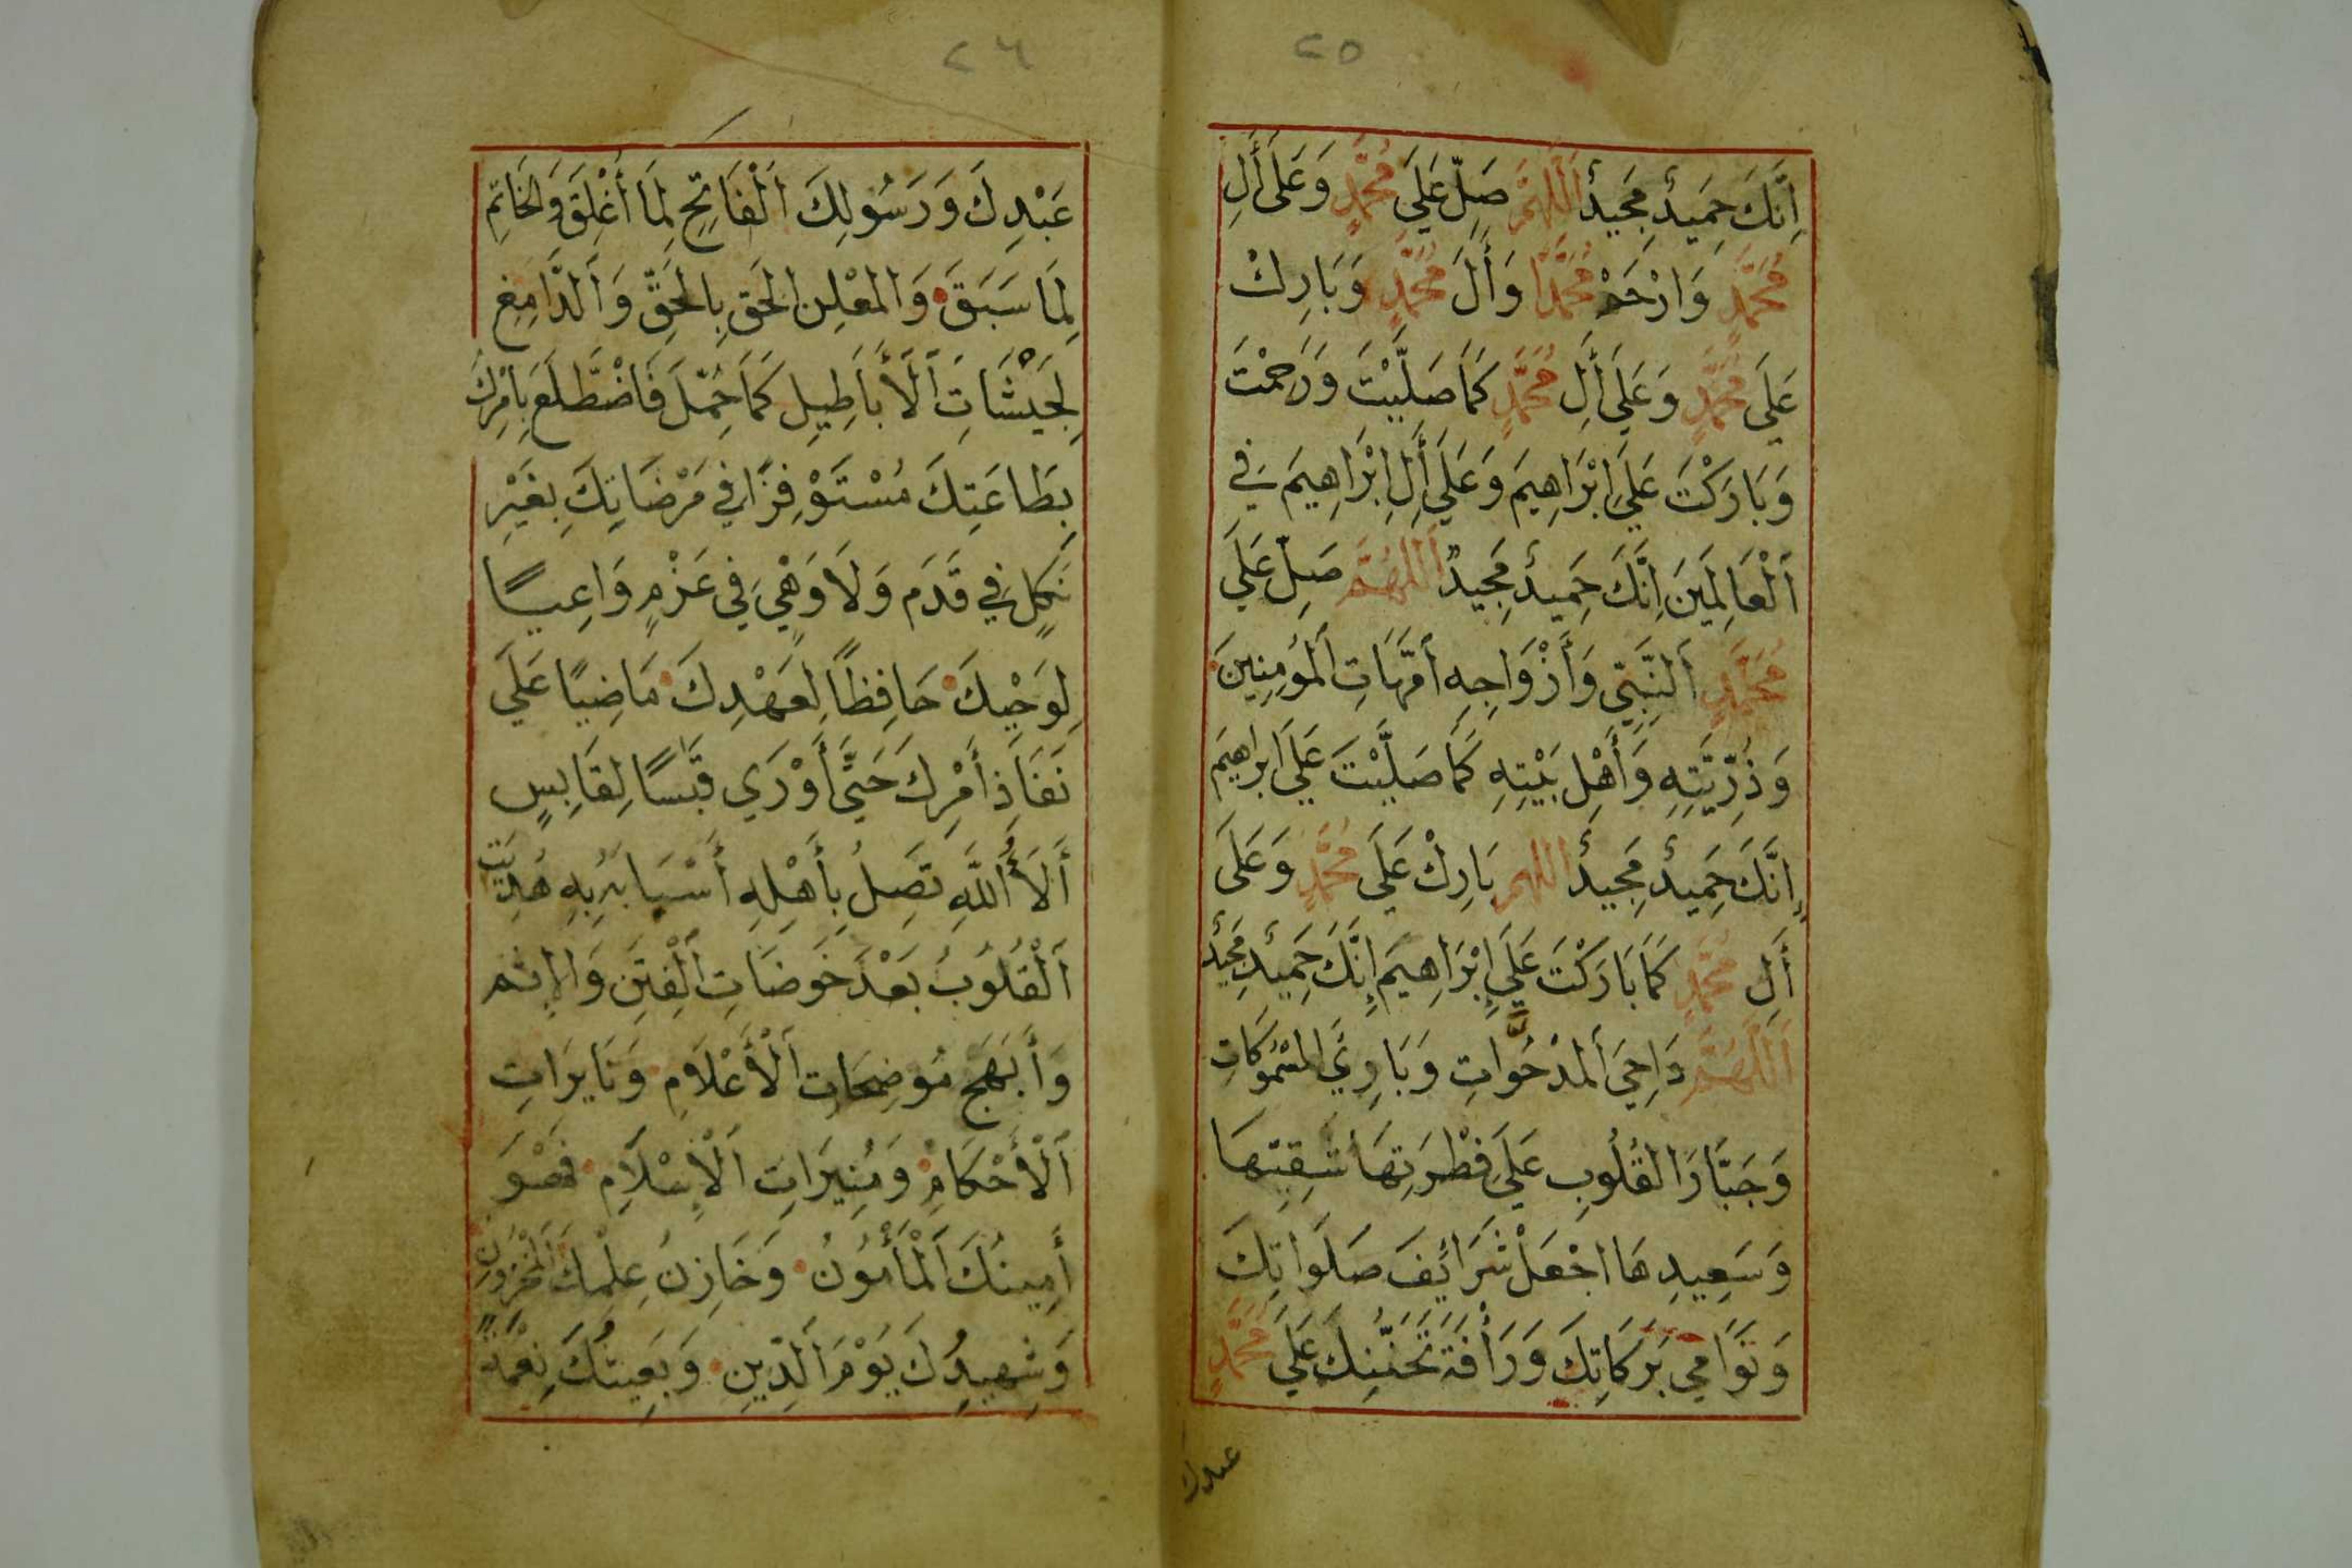 ٢٥
إِنَّكَ حَمِيدٌ مَجِيدٌ اَللّٰهُمَّ صَلِّ عَلَى مُحَمَّدٍ وَعَلَى أَلِ
مُحَمَّدٍ وَارْحَمْ مُحَمَّدًا وَأَلَ مُحَمَّدٍ وَبَارِكْ
عَلَى مُحَمَّدٍ وَعَلَى أَلِ مُحَمَّدٍ كَمَا صَلَّيْتَ وَرَحِمْتَ
وَبَارَكْتَ عَلَى اِبْرَاهِيمَ وَعَلَى أَلِ اِبْرَاهِيمَ فِي
اَلْعَالَمِينَ اِنَّكَ حَمِيدٌ مَجِيدٌ اَللّٰهُمَّ صَلِّ عَلَى
مُحَمَّدٍ اَلنَّبِيِّ وَأَزْوَاجِهِ أُمَّهَاتِ اَلْمُؤمِنِينَ
وَذُرِّيَّتِهِ وَأَهْلِ بَيْتِهِ كَمَا صَلَّيْتَ عَلَى اِبراهِيمَ
إِنَّكَ حَمِيدٌ مَجِيدٌ اللهم بَارِكْ عَلَى مُحَمَّدٍ وَعَلَى
أَلِ مُحَمَّدٍ كَمَا بَارَكْتَ عَلَى إِبْرَاهِيمَ إِنَّكَ حَمِيدٌ مَجِيدٌ
اَللّٰهُمَّ دَاحِيَ اَلمَدْحُوَّاتِ وَبَارِئَ المَسْمُوكَاتِ
وَجَبَّارَ القُلُوبِ عَلَى فِطْرَتِهَا شَقِيِّهَا
وَسَعِيدِهَا اجْعَلْ شَرَائِفَ صَلَوَاتِكَ
وَنَوَامِي بَرَكَاتِكَ وَرَأْفَةَ تَحَنُّنِكَ عَلَى مُحَمَّدٍ
عبدك
٢٦
عَبْدِكَ وَرَسُولِكَ اَلْفَاتِحِ لِمَا أُغْلِقَ وَالخَاتِمِ
لِمَا سَبَقَ وَالمُعْلِنِ الحَقِ بِالحَقِّ وَاَلدَّامِغِ
لِجَيْشَاتِ اَلْأَبَاطِيلِ كَمَا حُمِّلَ فَاضْطَلَعَ بِاَمْرِكَ
بِطَاعَتِكَ مُسْتَوْفِزًا فِي مَرْضَاتِكَ بِغَيْرِ
نَكِلٍ فِي قَدَم وَلَا وَهْيٍ فِي عَزْمٍ وَاعِيًا
لِوَحْيِكَ حَافِظًا لِعَهْدِكَ مَاضِيًا عَلَى
نَفَاذِ أَمْرِكَ حَتَّى أَوْرَى قَبَسًا لِقَابِسٍ
أَلَأُ اَللّٰهِ تَصِلُ بِأَهْلِهِ أَسْبَابَهُ بِهِ هُدِيَتِ
اَلْقُلُوبُ بَعْدَ خَوضَاتِ اَلْفِتَنِ وَالاِثم
وَأَبْهَجَ مُوضِحَاتِ اَلْأَعْلَامِ وَنَايِرَاتِ
اَلْأَحْكَامِ وَمُنِيرَاتِ اَلْاِسْلَامِ فَهْوَ
أَمِينُكَ اَلْمَأْمُونُ وَخَازِنُ عِلْمِكَ اَلْمَخْزُونِ
وَشَهِيدُكَ يَوْمَ اَلدِّينِ وَبَعِيثُكَ نِعْمَةً